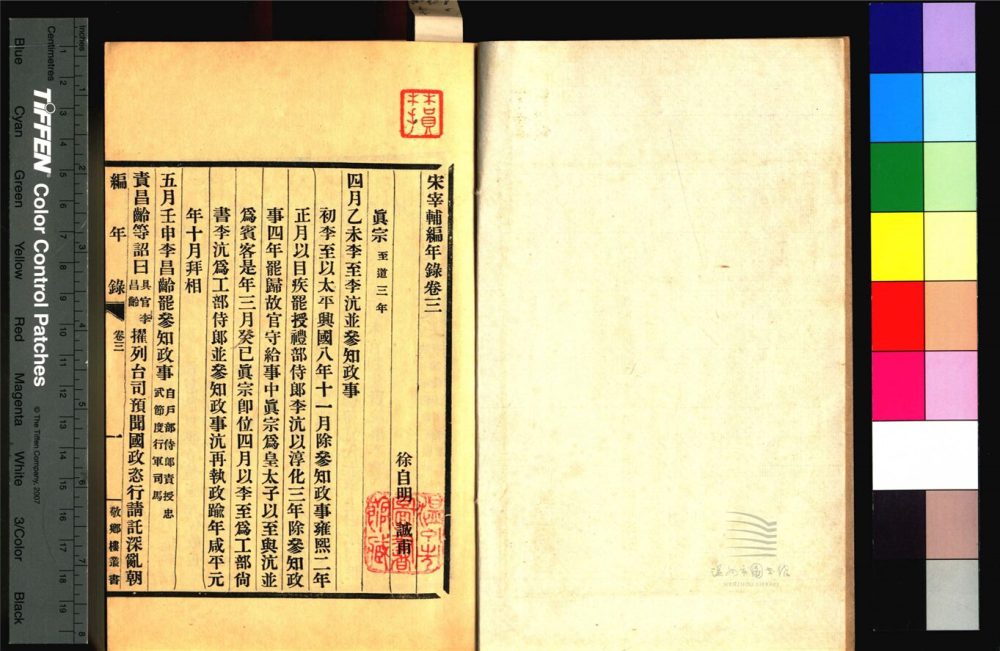 宋宰輔編年錄卷三
徐自明 誠甫
眞宗 至道三年
四月乙未李至李沆並參知政事
初李至以太平興國八年十一月除參知政事雍熙二年
正月以目疾罷授禮部侍郎李沆以淳化三年除參知政
事四年罷歸故官守給事中眞宗爲皇太子以至與沆並
爲賓客是年三月癸巳眞宗卽位四月以李至爲工部尙
書李沆爲工部侍郎並參知政事沆再執政踰年咸平元
年十月拜相
五月壬申李昌齡罷參知政事 自戶部侍郎責授忠武節度行軍司馬
責昌齡等詔曰 具官李昌齡 擢列台司預聞國政恣行請託深亂朝
編年錄 卷三 一 敬鄉樓叢書
溫州市圖書館
Inches
Centimetres
TIFFEN Color Control Patches
© The Tiffen Company, 2007
Blue Cyan Green Yellow Red Magenta White 3/Color Black
1 2 3 4 5 6 7 8 9 10 11 12 13 14 15 16 17 18 19